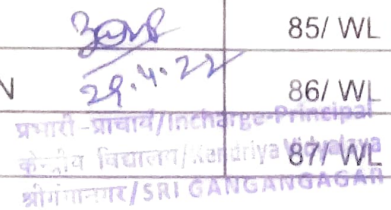 85/ WL
N
29.4.22
86/ WL
प्रभारी-प्राचार्य/Incharge-Principal
केन्द्रीय विद्यालय/Kendriya Vidyalaya
87/ WL
श्रीगंगानगर/SRI GANGANGAGAR